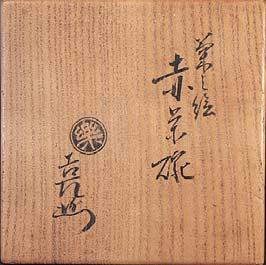 菊之絵
赤茶碗
樂
吉左衛門